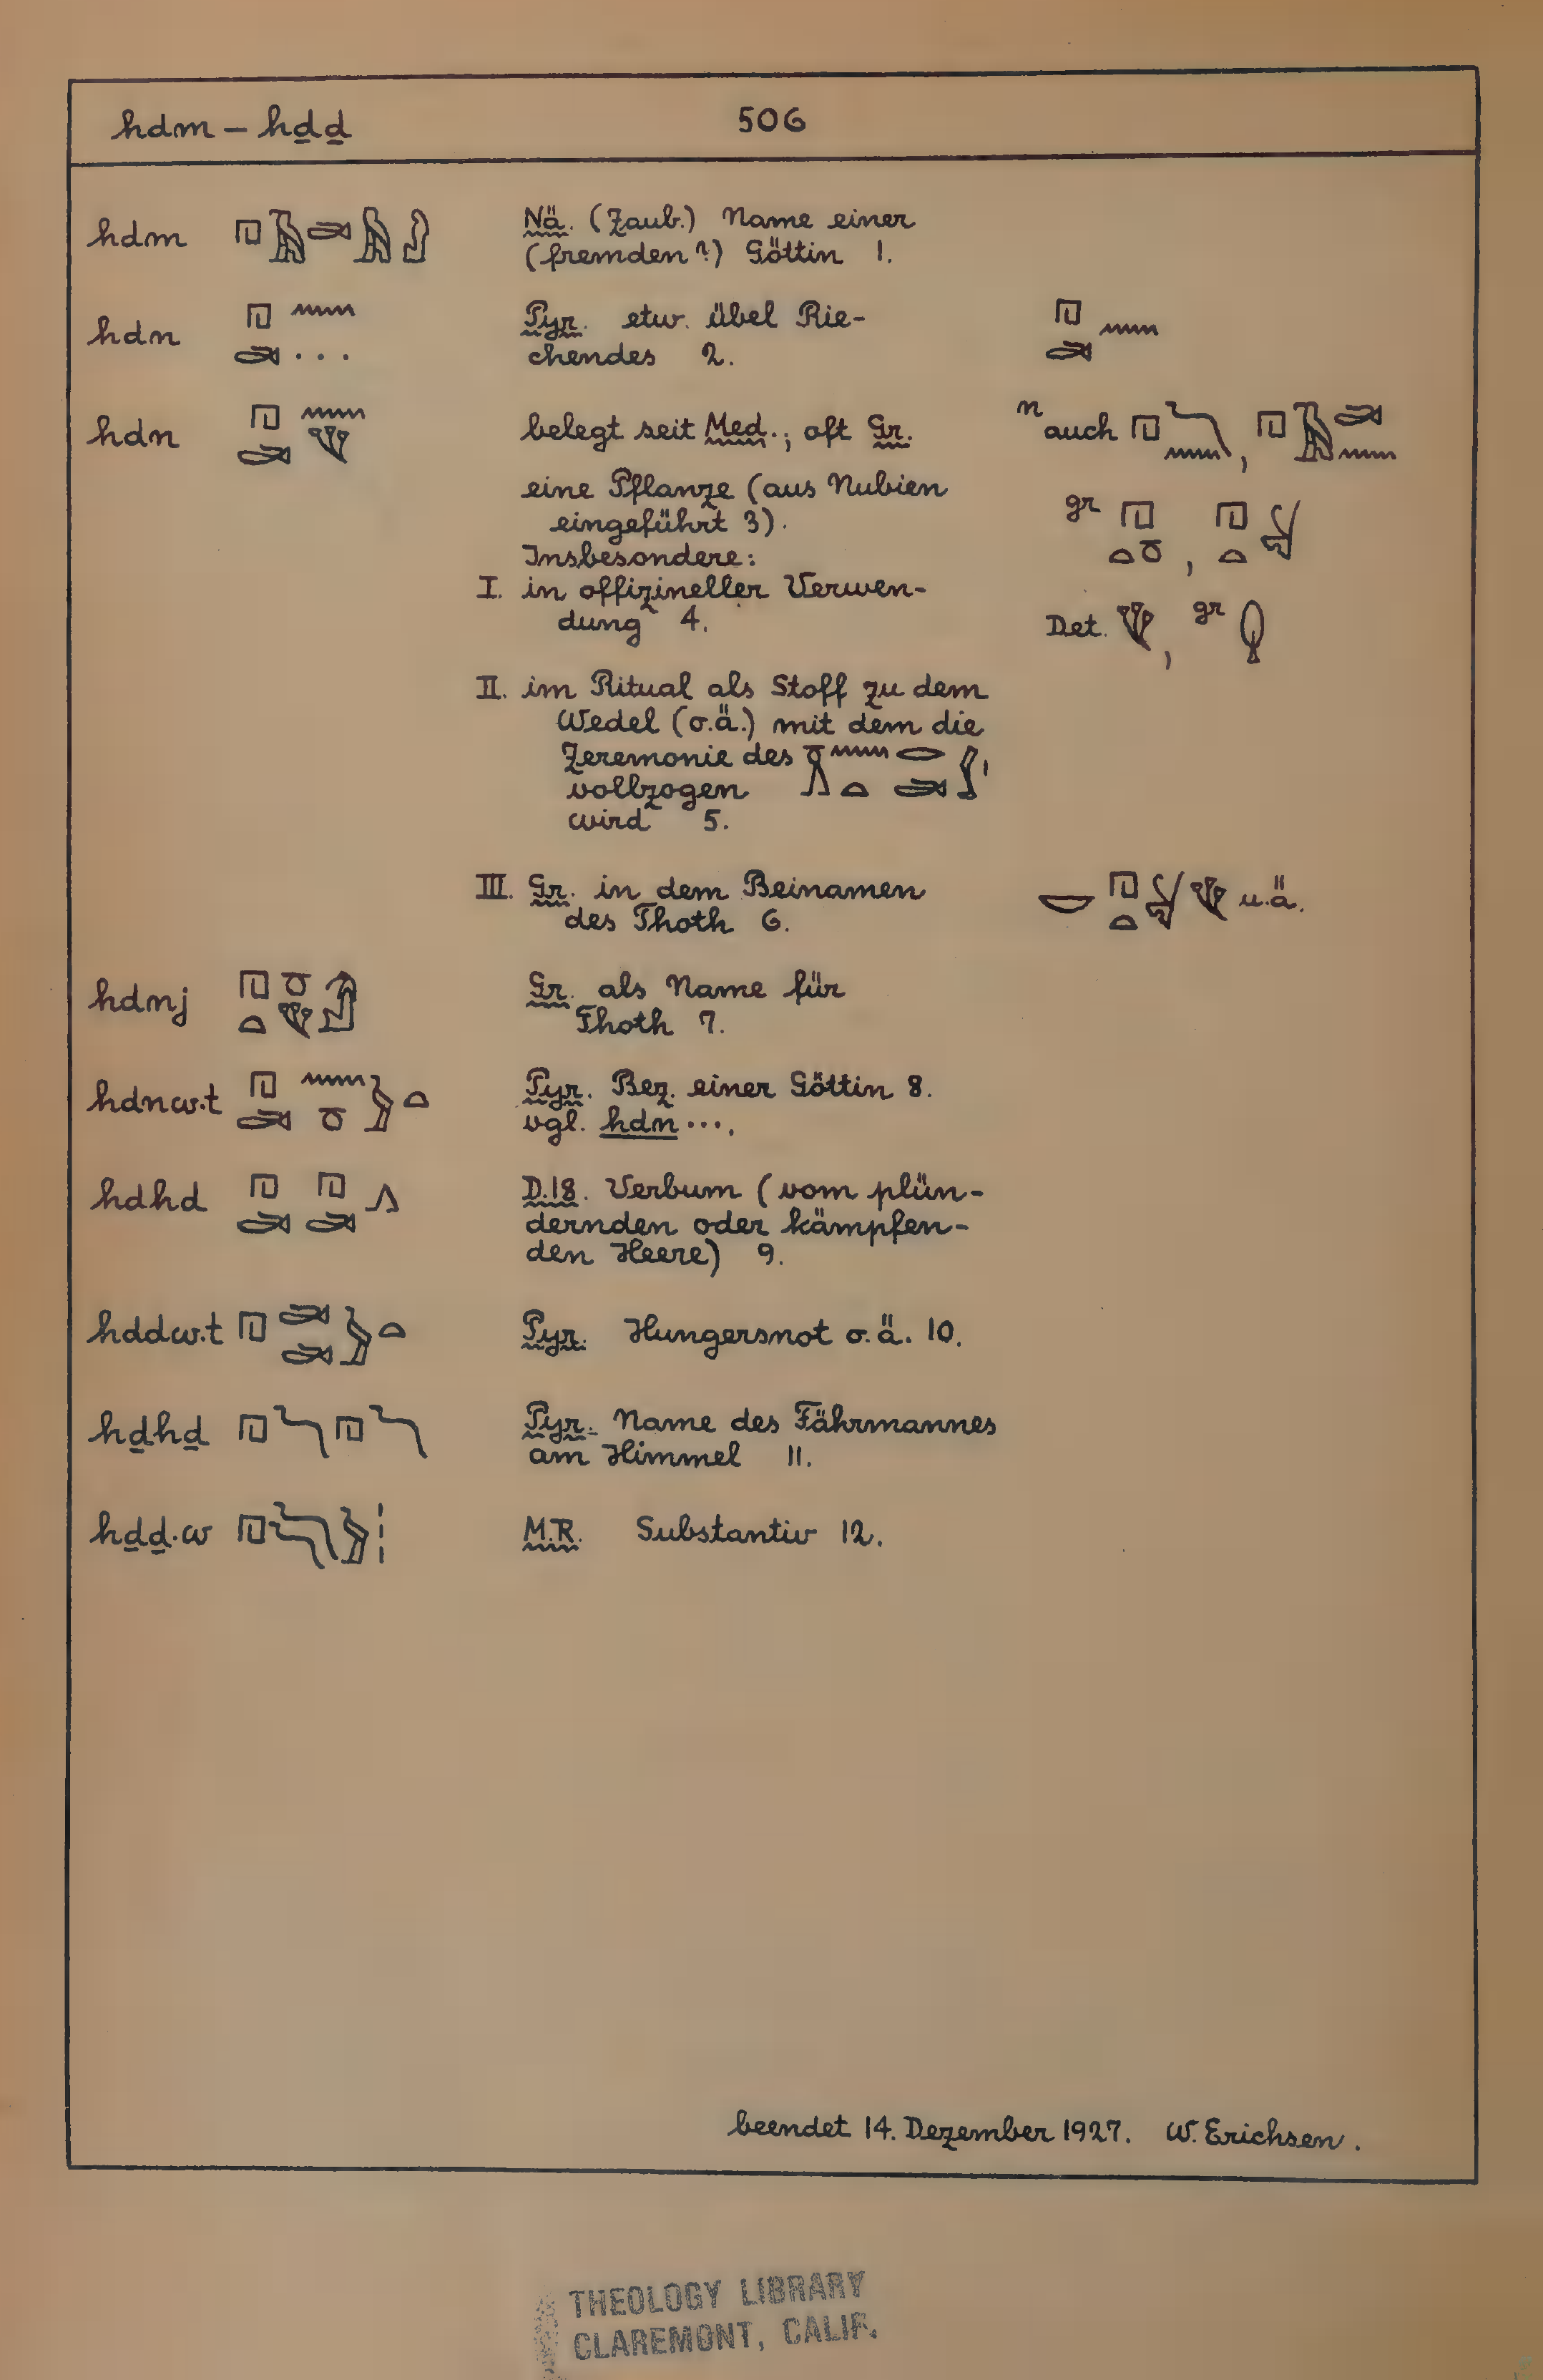 hdm – hḏḏ 506
hdm Nä. (Zaub.) Name einer
(fremden?) Göttin 1.
hdn ... Pyr. etw. übel Rie-
chendes 2.
hdn belegt seit Med.; oft Gr. n auch ,
eine Pflanze (aus Nubien gr ,
eingeführt 3).
Insbesondere:
I. in offizineller Verwen-
dung 4. Det. , gr
II. im Ritual als Stoff zu dem
Wedel (o.ä.) mit dem die
Zeremonie des
vollzogen
wird 5.
III. Gr. in dem Beinamen u.ä.
des Thoth 6.
hdnj Gr. als Name für
Thoth 7.
hdnw.t Pyr. Bez. einer Göttin 8.
vgl. hdn ....
hdhd D.18. Verbum (vom plün-
dernden oder kämpfen-
den Heere) 9.
hddw.t Pyr. Hungersnot o.ä. 10.
hḏhḏ Pyr. Name des Fährmannes
am Himmel 11.
hḏḏ.w M.R. Substantiv 12.
beendet 14. Dezember 1927. W. Erichsen.
THEOLOGY LIBRARY
CLAREMONT, CALIF.